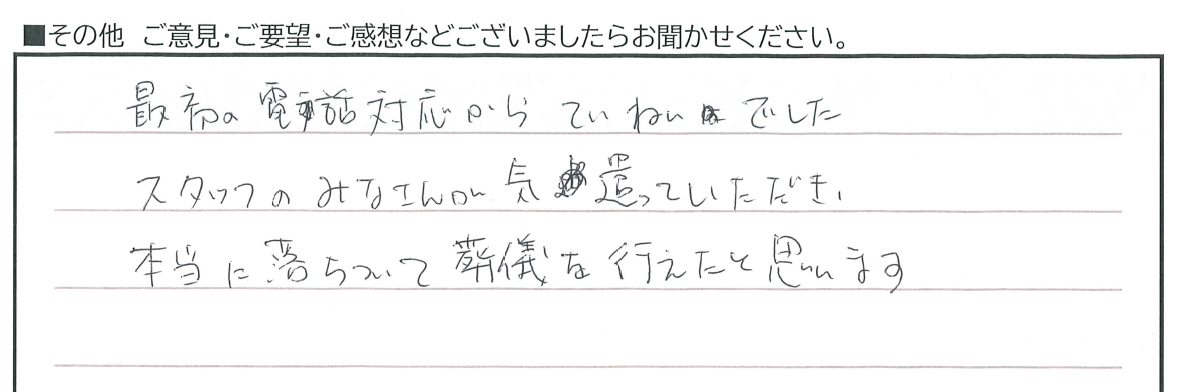 ■その他 ご意見・ご要望・ご感想などございましたらお聞かせください。
最初の電話対応からていねいでした
スタッフのみなさんが気遣っていただき、
本当に落ちついて葬儀を行えたと思います